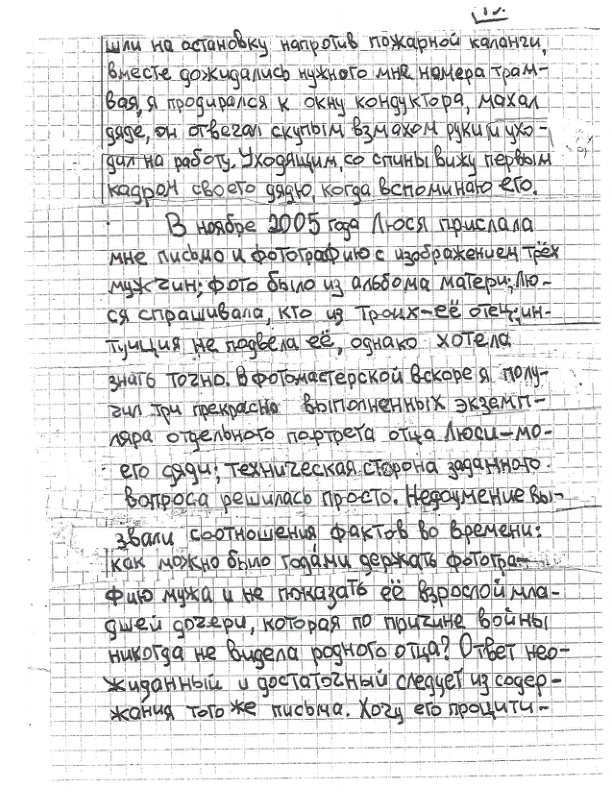 шли на остановку напротив пожарной каланчи,
вместе дожидались нужного мне номера трам-
вая, я продирался к окну кондуктора, махал
дяде, он отвечал скупым взмахом руки и ухо-
дил на работу. Уходящим, со спины вижу первым
кадром своего дядю, когда вспоминаю его.
В ноябре 2005 года Люся прислала
мне письмо и фотографию с изображением трёх
мужчин; фото было из альбома матери; Лю-
ся спрашивала, кто из троих – её отец; ин-
туиция не подвела её, однако хотела
знать точно. В фотомастерской вскоре я полу-
чил три прекрасно выполненных экземп-
ляра отдельного портрета отца Люси – мо-
его дяди; техническая сторона заданного
вопроса решилась просто. Недоумение вы-
звали соотношения фактов во времени:
как можно было годами держать фотогра-
фию мужа и не показать её взрослой мла-
дшей дочери, которая по причине войны
никогда не видела родного отца? Ответ нео-
жиданный и достаточный следует из содер-
жания того же письма. Хочу его процити-